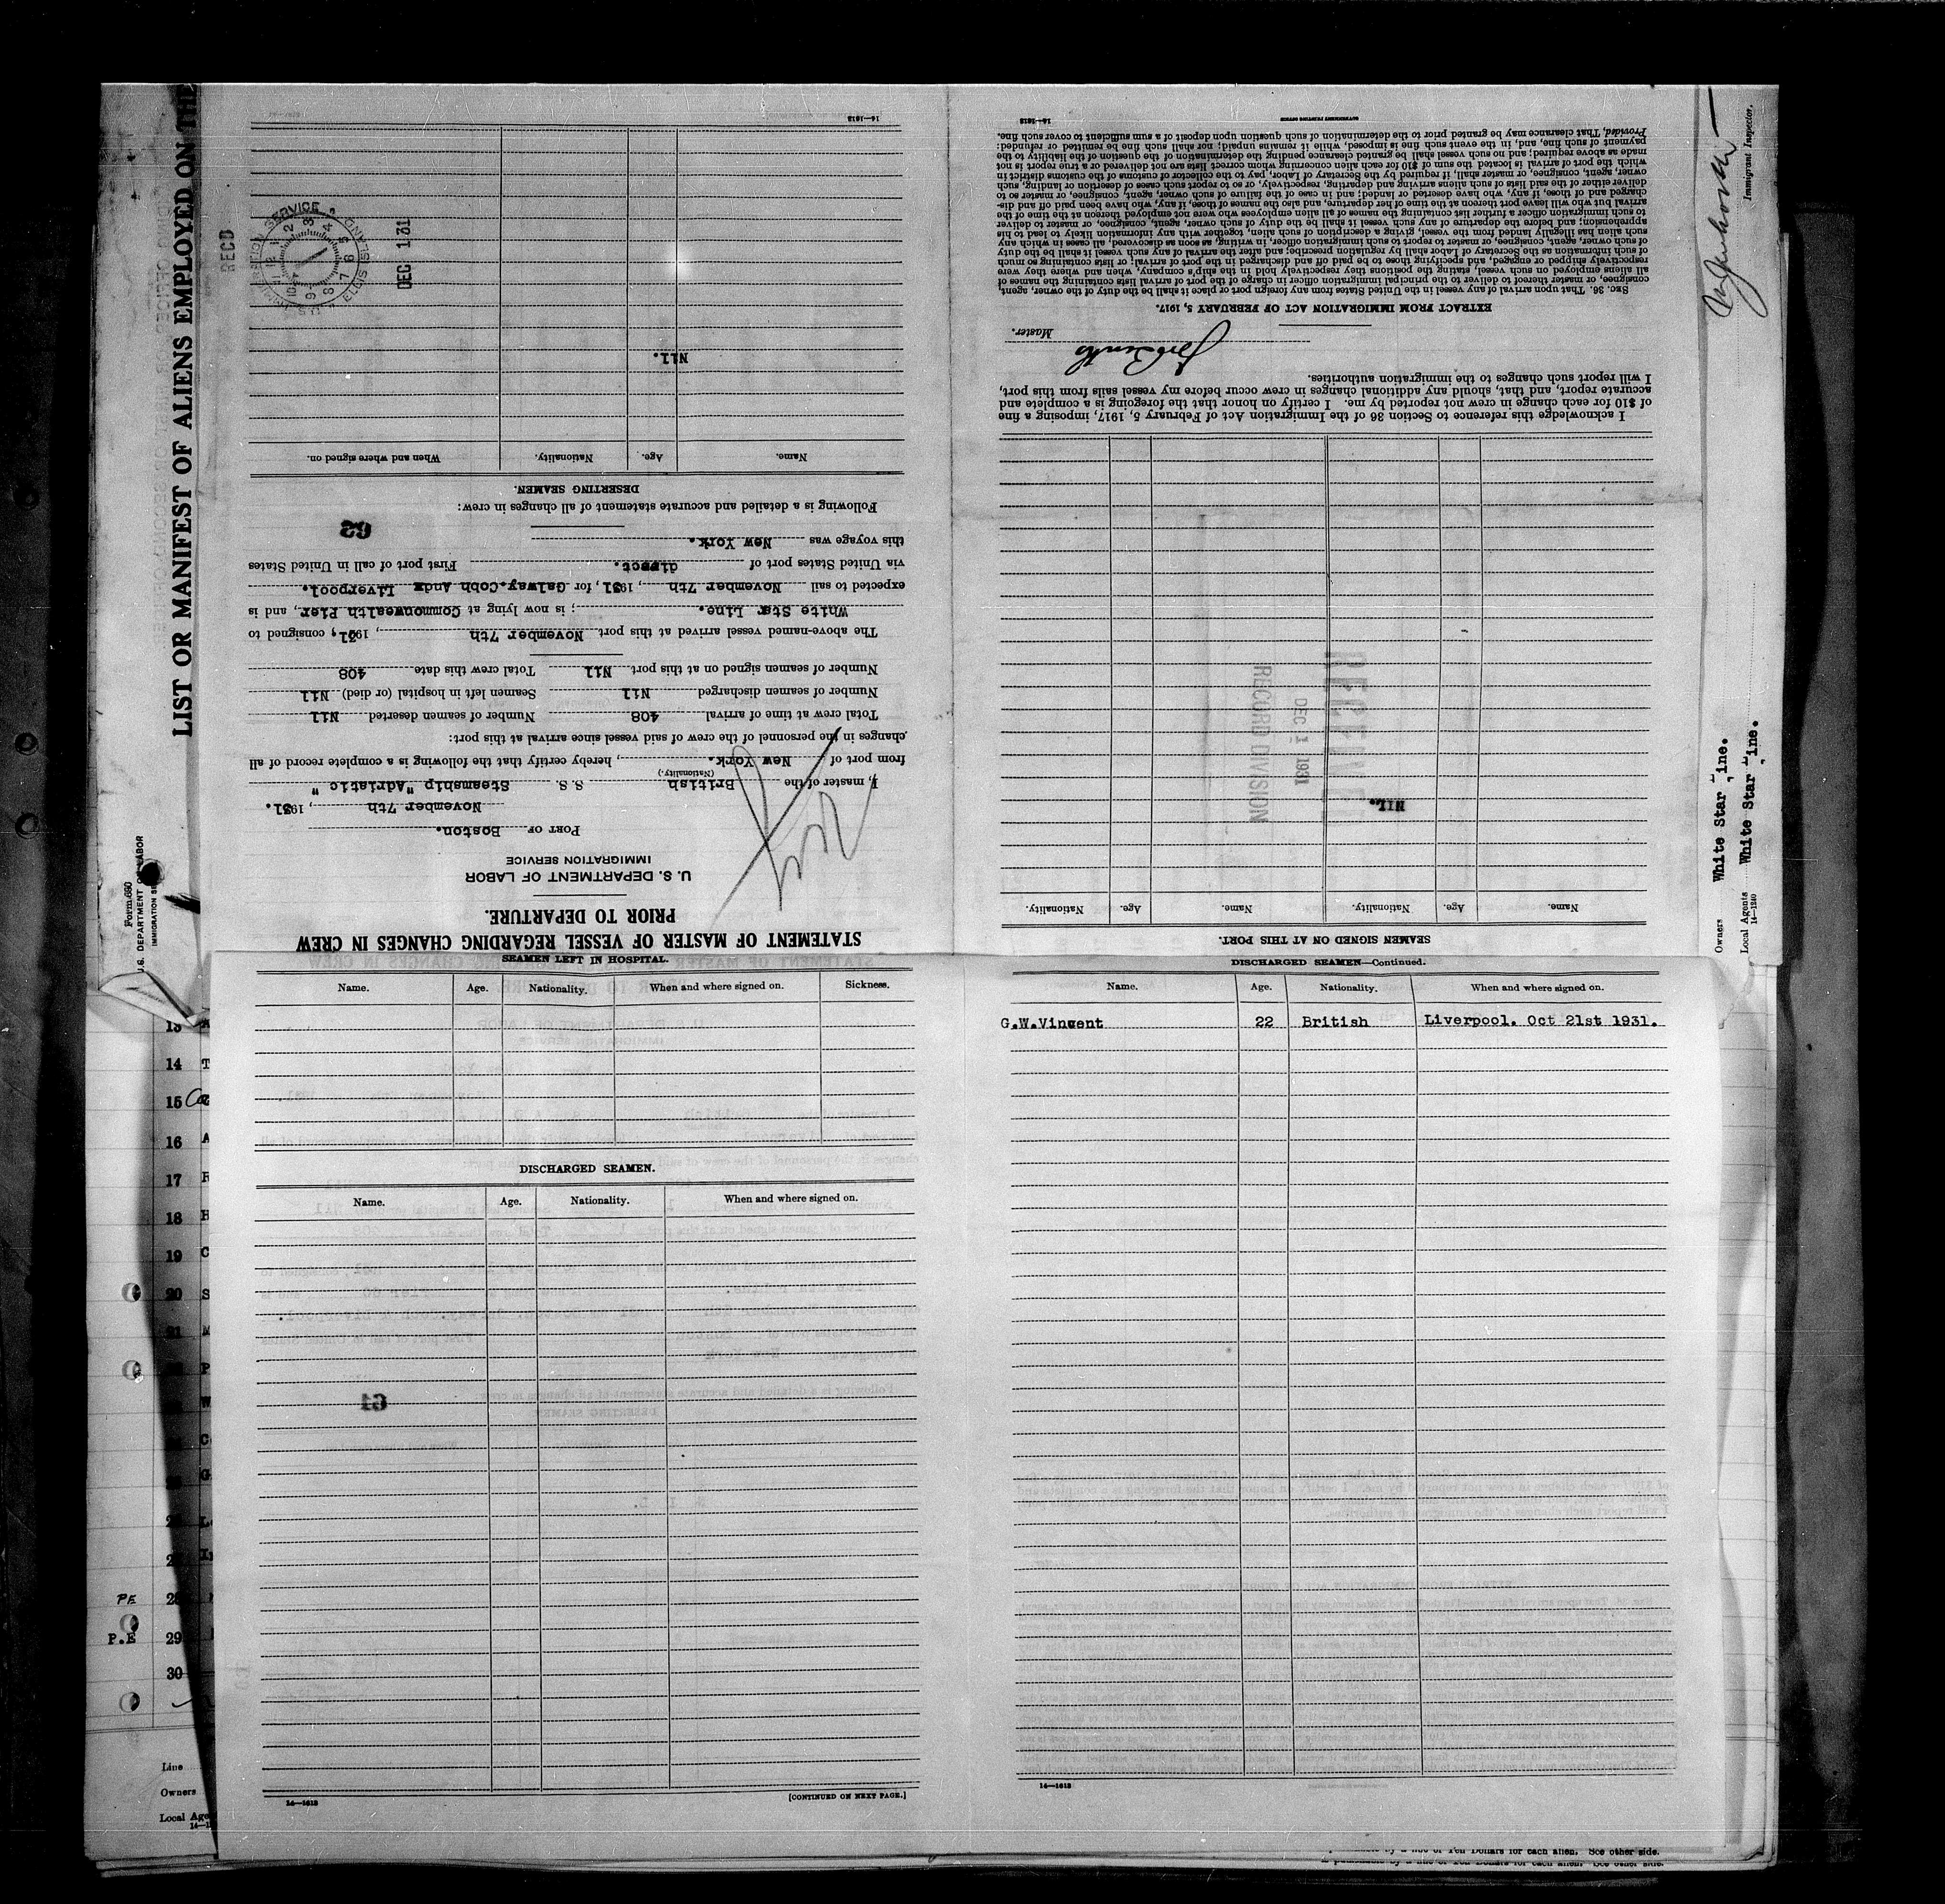 STATEMENT OF MASTER OF VESSEL REGARDING CHANGES IN CREW
PRIOR TO DEPARTURE.
U. S. DEPARTMENT OF LABOR
IMMIGRATION SERVICE
PORT OF Boston.
November 7th, 1931.
I, master of the British S. S. Steamship "Adriatic"
(Nationality.)
from port of New York., hereby certify that the following is a complete record of all
changes in the personnel of the crew of said vessel since arrival at this port:
Total crew at time of arrival 408 Number of seamen deserted Nil
Number of seamen discharged Nil Seamen left in hospital (or died) Nil
Number of seamen signed on at this port Nil Total crew this date 408
The above-named vessel arrived at this port November 7th, 1931, consigned to
White Star Line.; is now lying at Commonwealth Pier, and is
expected to sail November 7th, 1931, for Galway.Cobh Andx Liverpool.
via United States port of direct. First port of call in United States
this voyage was New York.
62
Following is a detailed and accurate statement of all changes in crew:
DESERTING SEAMEN.
Name. Age. Nationality. When and where signed on.
Nil.
RECD
DEC 1 31
IMMIGRATION SERVICE
ELLIS ISLAND
14—1613
SEAMEN SIGNED ON AT THIS PORT.
Name. Age. Nationality. Name. Age. Nationality.
NIL.
RECEIVED
DEC 1 1931
RECORD DIVISION
I acknowledge this reference to Section 36 of the Immigration Act of February 5, 1917, imposing a fine
of $10 for each change in crew not reported by me. I certify on honor that the foregoing is a complete and
accurate report, and that, should any additional changes in crew occur before my vessel sails from this port,
I will report such changes to the immigration authorities.
Master.
EXTRACT FROM IMMIGRATION ACT OF FEBRUARY 5, 1917.
SEC. 36. That upon arrival of any vessel in the United States from any foreign port or place it shall be the duty of the owner, agent,
consignee, or master thereof to deliver to the principal immigration officer in charge of the port of arrival lists containing the names of
all aliens employed on such vessel, stating the positions they respectively hold in the ship's company, when and where they were
respectively shipped or engaged, and specifying those to be paid off and discharged in the port of arrival; or lists containing so much
of such information as the Secretary of Labor shall by regulation prescribe; and after the arrival of any such vessel it shall be the duty
of such owner, agent, consignee, or master to report to such immigration officer, in writing, as soon as discovered, all cases in which any
such alien has illegally landed from the vessel, giving a description of such alien, together with any information likely to lead to his
apprehension; and before the departure of any such vessel it shall be the duty of such owner, agent, consignee, or master to deliver
to such immigration officer a further list containing the names of all alien employees who were not employed thereon at the time of the
arrival but who will leave port thereon at the time of her departure, and also the names of those, if any, who have been paid off and dis-
charged and of those, if any, who have deserted or landed; and in case of the failure of such owner, agent, consignee, or master so to
deliver either of the said lists of such aliens arriving and departing, respectively, or so to report such cases of desertion or landing, such
owner, agent, consignee, or master shall, if required by the Secretary of Labor, pay to the collector of customs of the customs district in
which the port of arrival is located the sum of $10 for each alien concerning whom correct lists are not delivered or a true report is not
made as above required; and no such vessel shall be granted clearance pending the determination of the question of the liability to the
payment of such fine, and, in the event such fine is imposed, while it remains unpaid; nor shall such fine be remitted or refunded:
Provided, That clearance may be granted prior to the determination of such question upon deposit of a sum sufficient to cover such fine.
14—1613
LIST OR MANIFEST OF ALIENS EMPLOYED ON THE
Form 680
U.S. DEPARTMENT OF LABOR
IMMIGRATION SE
Immigrant Inspector.
Owners White Star Line.
Local Agents White Star Line.
14—1240
SEAMEN LEFT IN HOSPITAL.
Name. Age. Nationality. When and where signed on. Sickness.
DISCHARGED SEAMEN.
Name. Age. Nationality. When and where signed on.
61
14—1613
[CONTINUED ON NEXT PAGE.]
DISCHARGED SEAMEN—Continued.
Name. Age. Nationality. When and where signed on.
G.W.Vincent 22 British Liverpool. Oct 21st 1931.
14—1613
13
14
15
16
17
18
19
20
21
PE 28
P.E 29
30
Line
Owners
Local Age
by a fine of Ten Dollars for each alien. See other side.
is punishable by a fine of Ten Dollars for each alien. See other side.